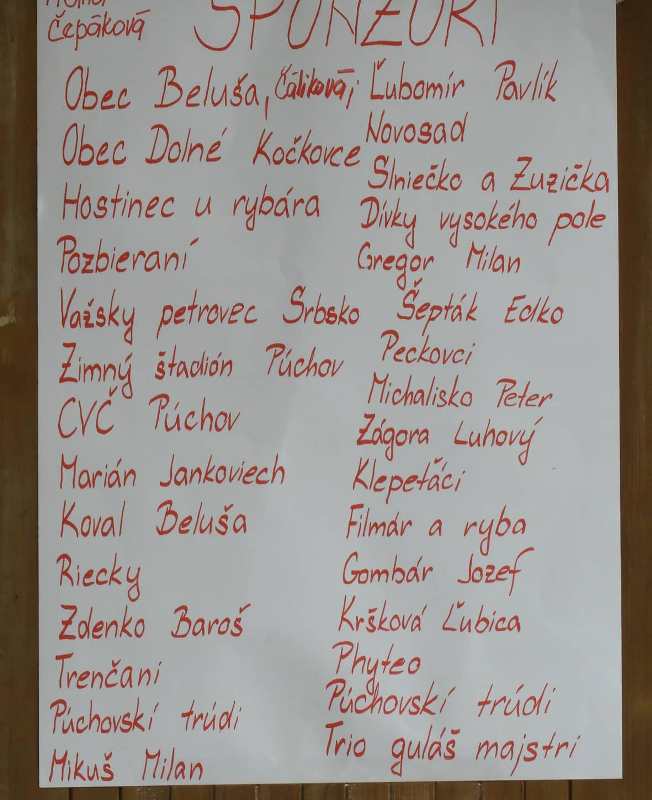 Čepáková
SPONZORI
Obec Beluša, Čáliková,
Obec Dolné Kočkovce
Hostinec u rybára
Pozbieraní
Važsky petrovec Srbsko
Zimný štadión Púchov
CVČ Púchov
Marián Jankoviech
Koval Beluša
Riecky
Zdenko Baroš
Trenčani
Púchovskí trúdi
Mikuš Milan
Ľubomír Pavlík
Novosad
Slniečko a Zuzička
Dívky vysokého pole
Gregor Milan
Šepták Edko
Peckovci
Michalisko Peter
Zágora Luhový
Klepeťáci
Filmár a ryba
Gombár Jozef
Kršková Ľubica
Phyteo
Púchovskí trúdi
Trio guláš majstri